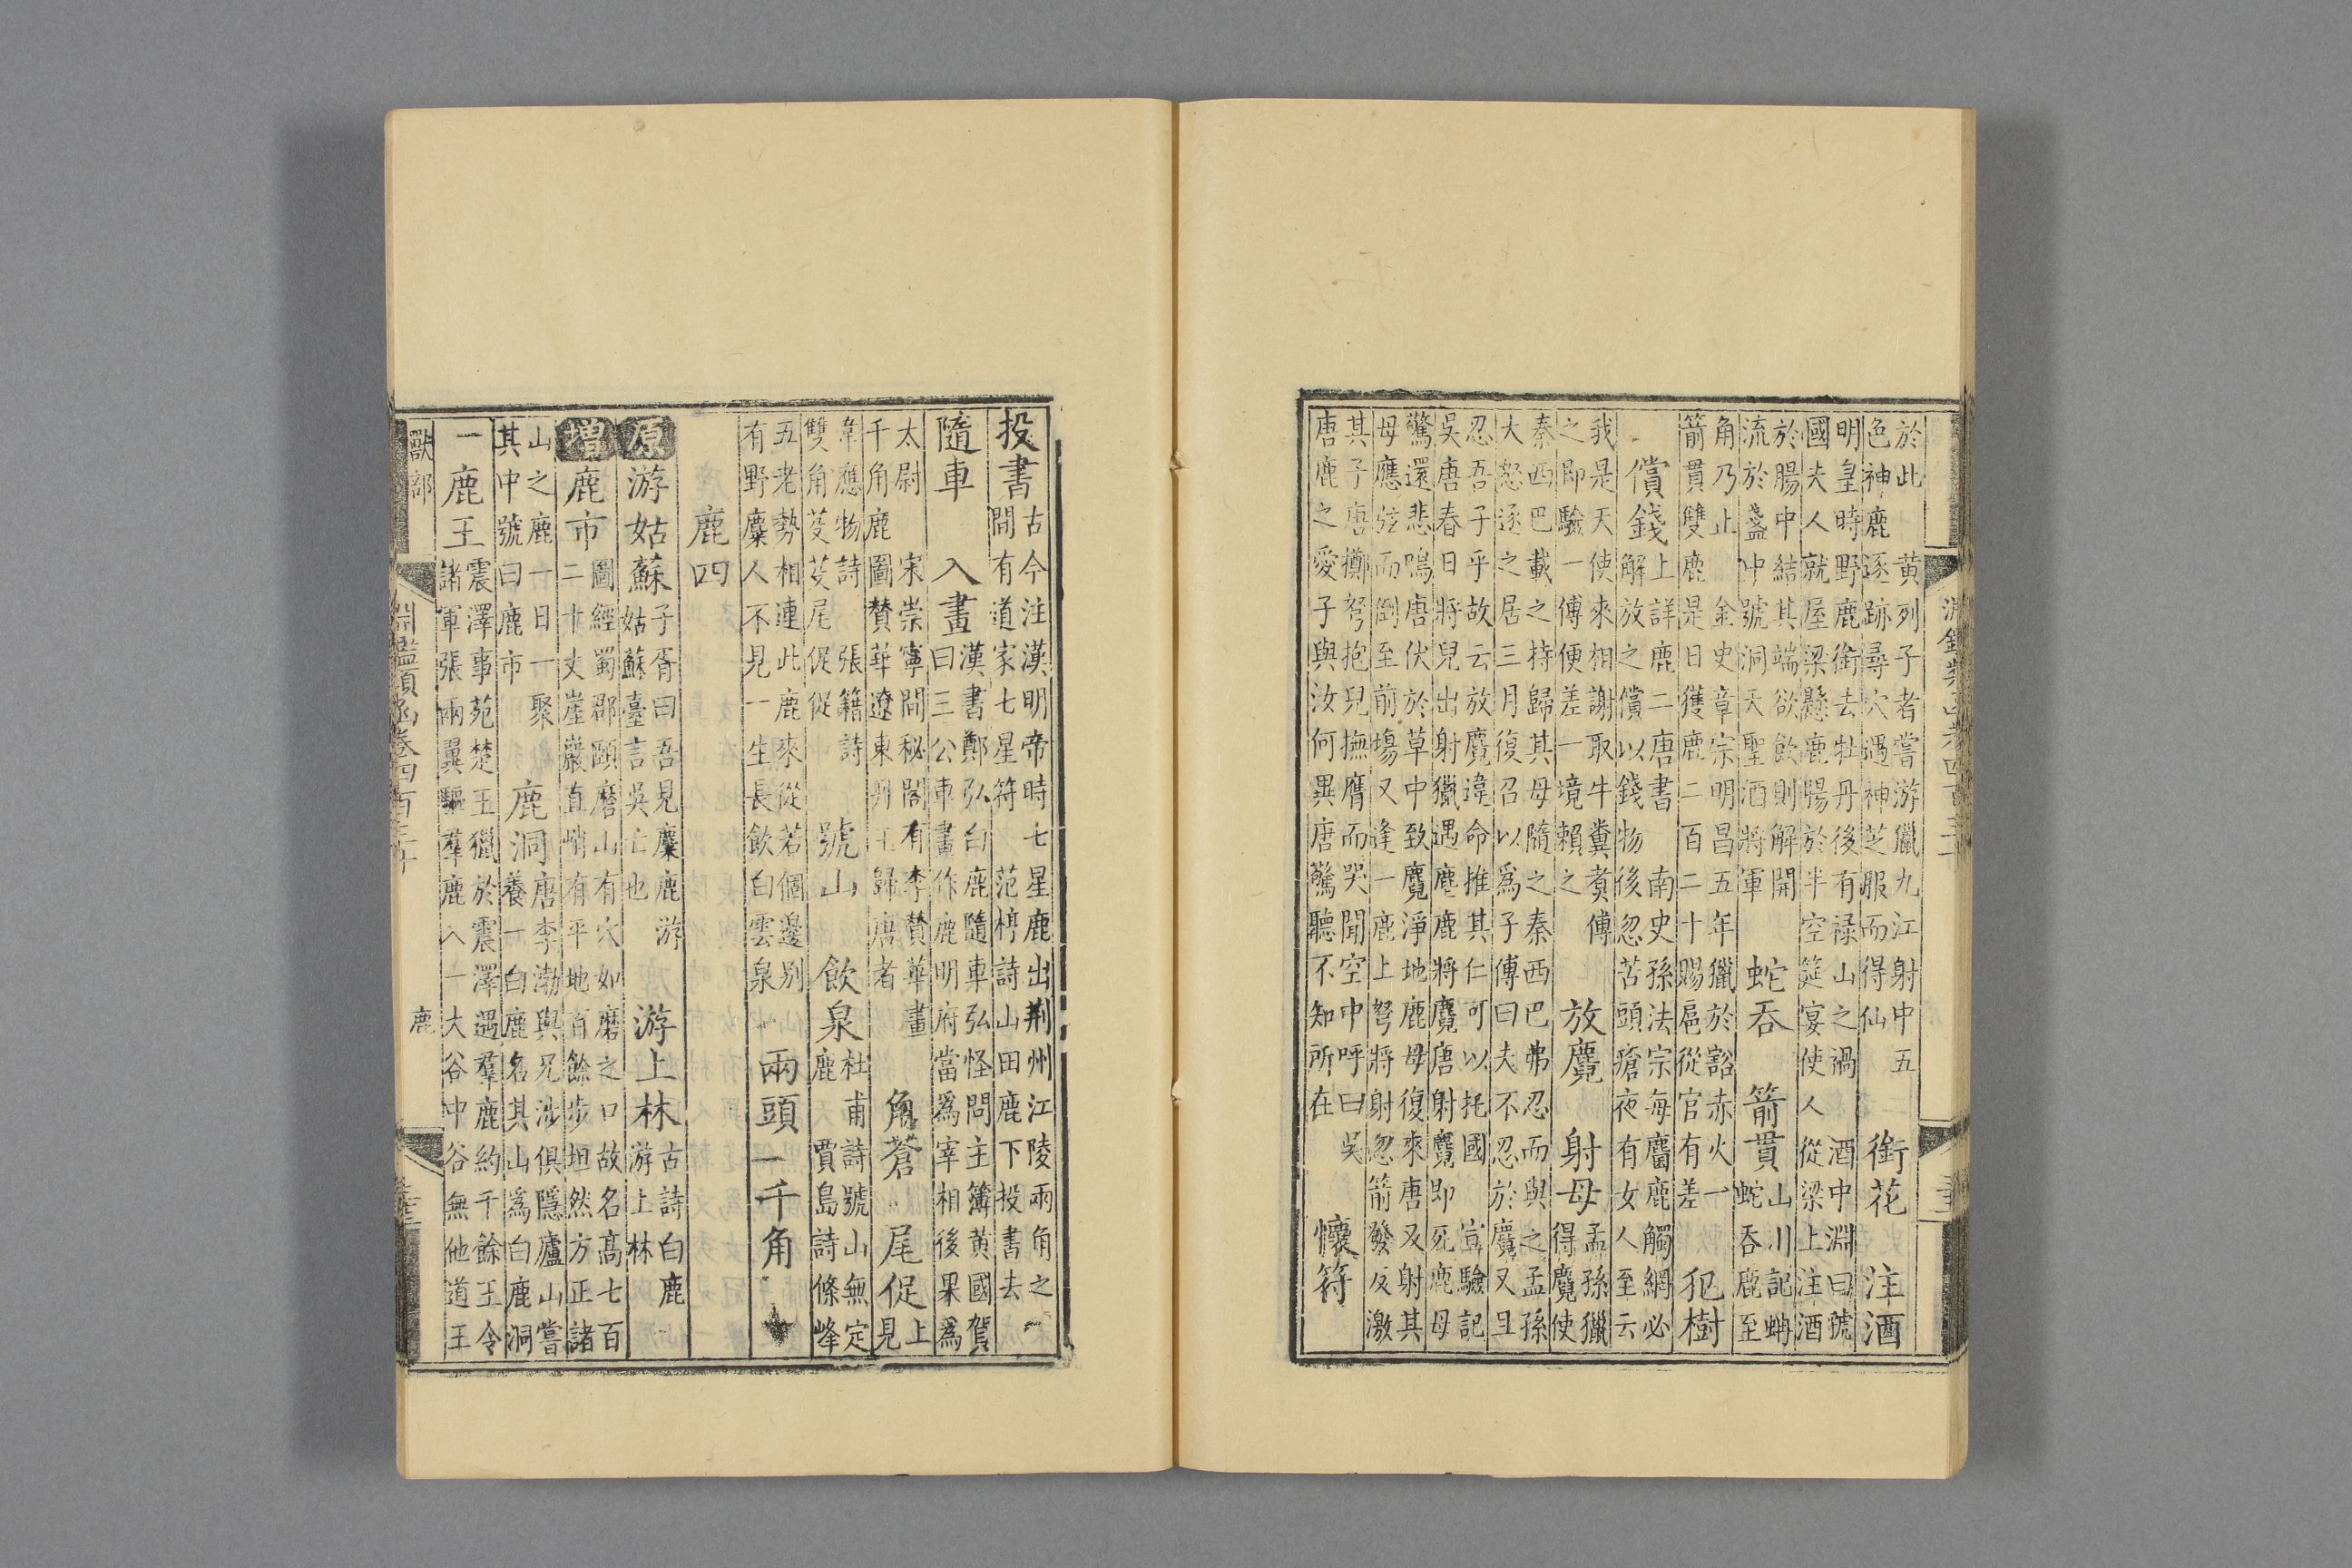 於此 黃列子者嘗游獵九江射中五
色神鹿逐跡尋穴遇神芝服而得仙
銜花 注酒
明皇時野鹿銜去牡丹後有祿山之禍 酒中淵曰虢
國夫人就屋梁懸鹿腸於半空筵宴使人從梁上注酒
於腸中結其端欲飲則解開
流於盞中號洞天聖酒將軍
蛇吞 箭貫
山川記蚺
蛇吞鹿至
角乃止 金史章宗明昌五年獵於豁赤火一
箭貫雙鹿是日獲鹿二百二十賜扈從官有差
犯樹
償錢
上詳鹿二唐書 南史孫法宗每麕鹿觸網必
解放之償以錢物後忽苦頭瘡夜有女人至云
我是天使來相謝取牛糞煑傅
之即驗一傅便差一境賴之
放麑 射母
孟孫獵
得麑使
秦西巴載之持歸其母隨之秦西巴弗忍而與之孟孫
大怒逐之居三月復召以爲子傅曰夫不忍於麑又且
忍吾子乎故云放麑違命推其仁可以托國 宣驗記
吳唐春日將兒出射獵遇麈鹿將麑唐射麑即死鹿母
驚還悲鳴唐伏於草中致麑淨地鹿母復來唐又射其
母應弦而倒至前塲又逢一鹿上弩將射忽箭發反激
其子唐擲弩抱兒撫膺而哭聞空中呼曰吳
唐鹿之愛子與汝何異唐驚聽不知所在
懷符
投書
古今注漢明帝時七星鹿出荆州江陵兩角之
間有道家七星符 范梈詩山田鹿下投書去
隨車 入畫
漢書鄭弘白鹿隨車弘怪問主簿黃國賀
曰三公車畫作鹿明府當爲宰相後果爲
太尉 宋崇寧間秘閣有李贊華畫
千角鹿圖贊華遼東丹王歸唐者
角蒼 尾促
上
見
韋應物詩 張籍詩
雙角芟芟尾促促
號山 飲泉
杜甫詩號山無定
鹿 賈島詩條峰
五老勢相連此鹿來從若個邊別
有野麋人不見一生長飲白雲泉
兩頭 一千角
鹿四
原 游姑蘇
子胥曰吾見麋鹿游
姑蘇臺言吳亡也
游上林
古詩白鹿
游上林
增 鹿市
圖經蜀郡頤磨山有穴如磨之口故名高七百
二十丈崖巖直峭有平地百餘步坦然方正諸
山之鹿一日一聚
其中號曰鹿市
鹿洞
唐李渤與兄涉俱隱廬山嘗
養一白鹿名其山爲白鹿洞
一鹿王
震澤事苑楚王獵於震澤遇羣鹿約千餘王令
諸軍張兩翼驅羣鹿入一大谷中谷無他道王
獸部 鹿
淵鑑類函卷四百三十